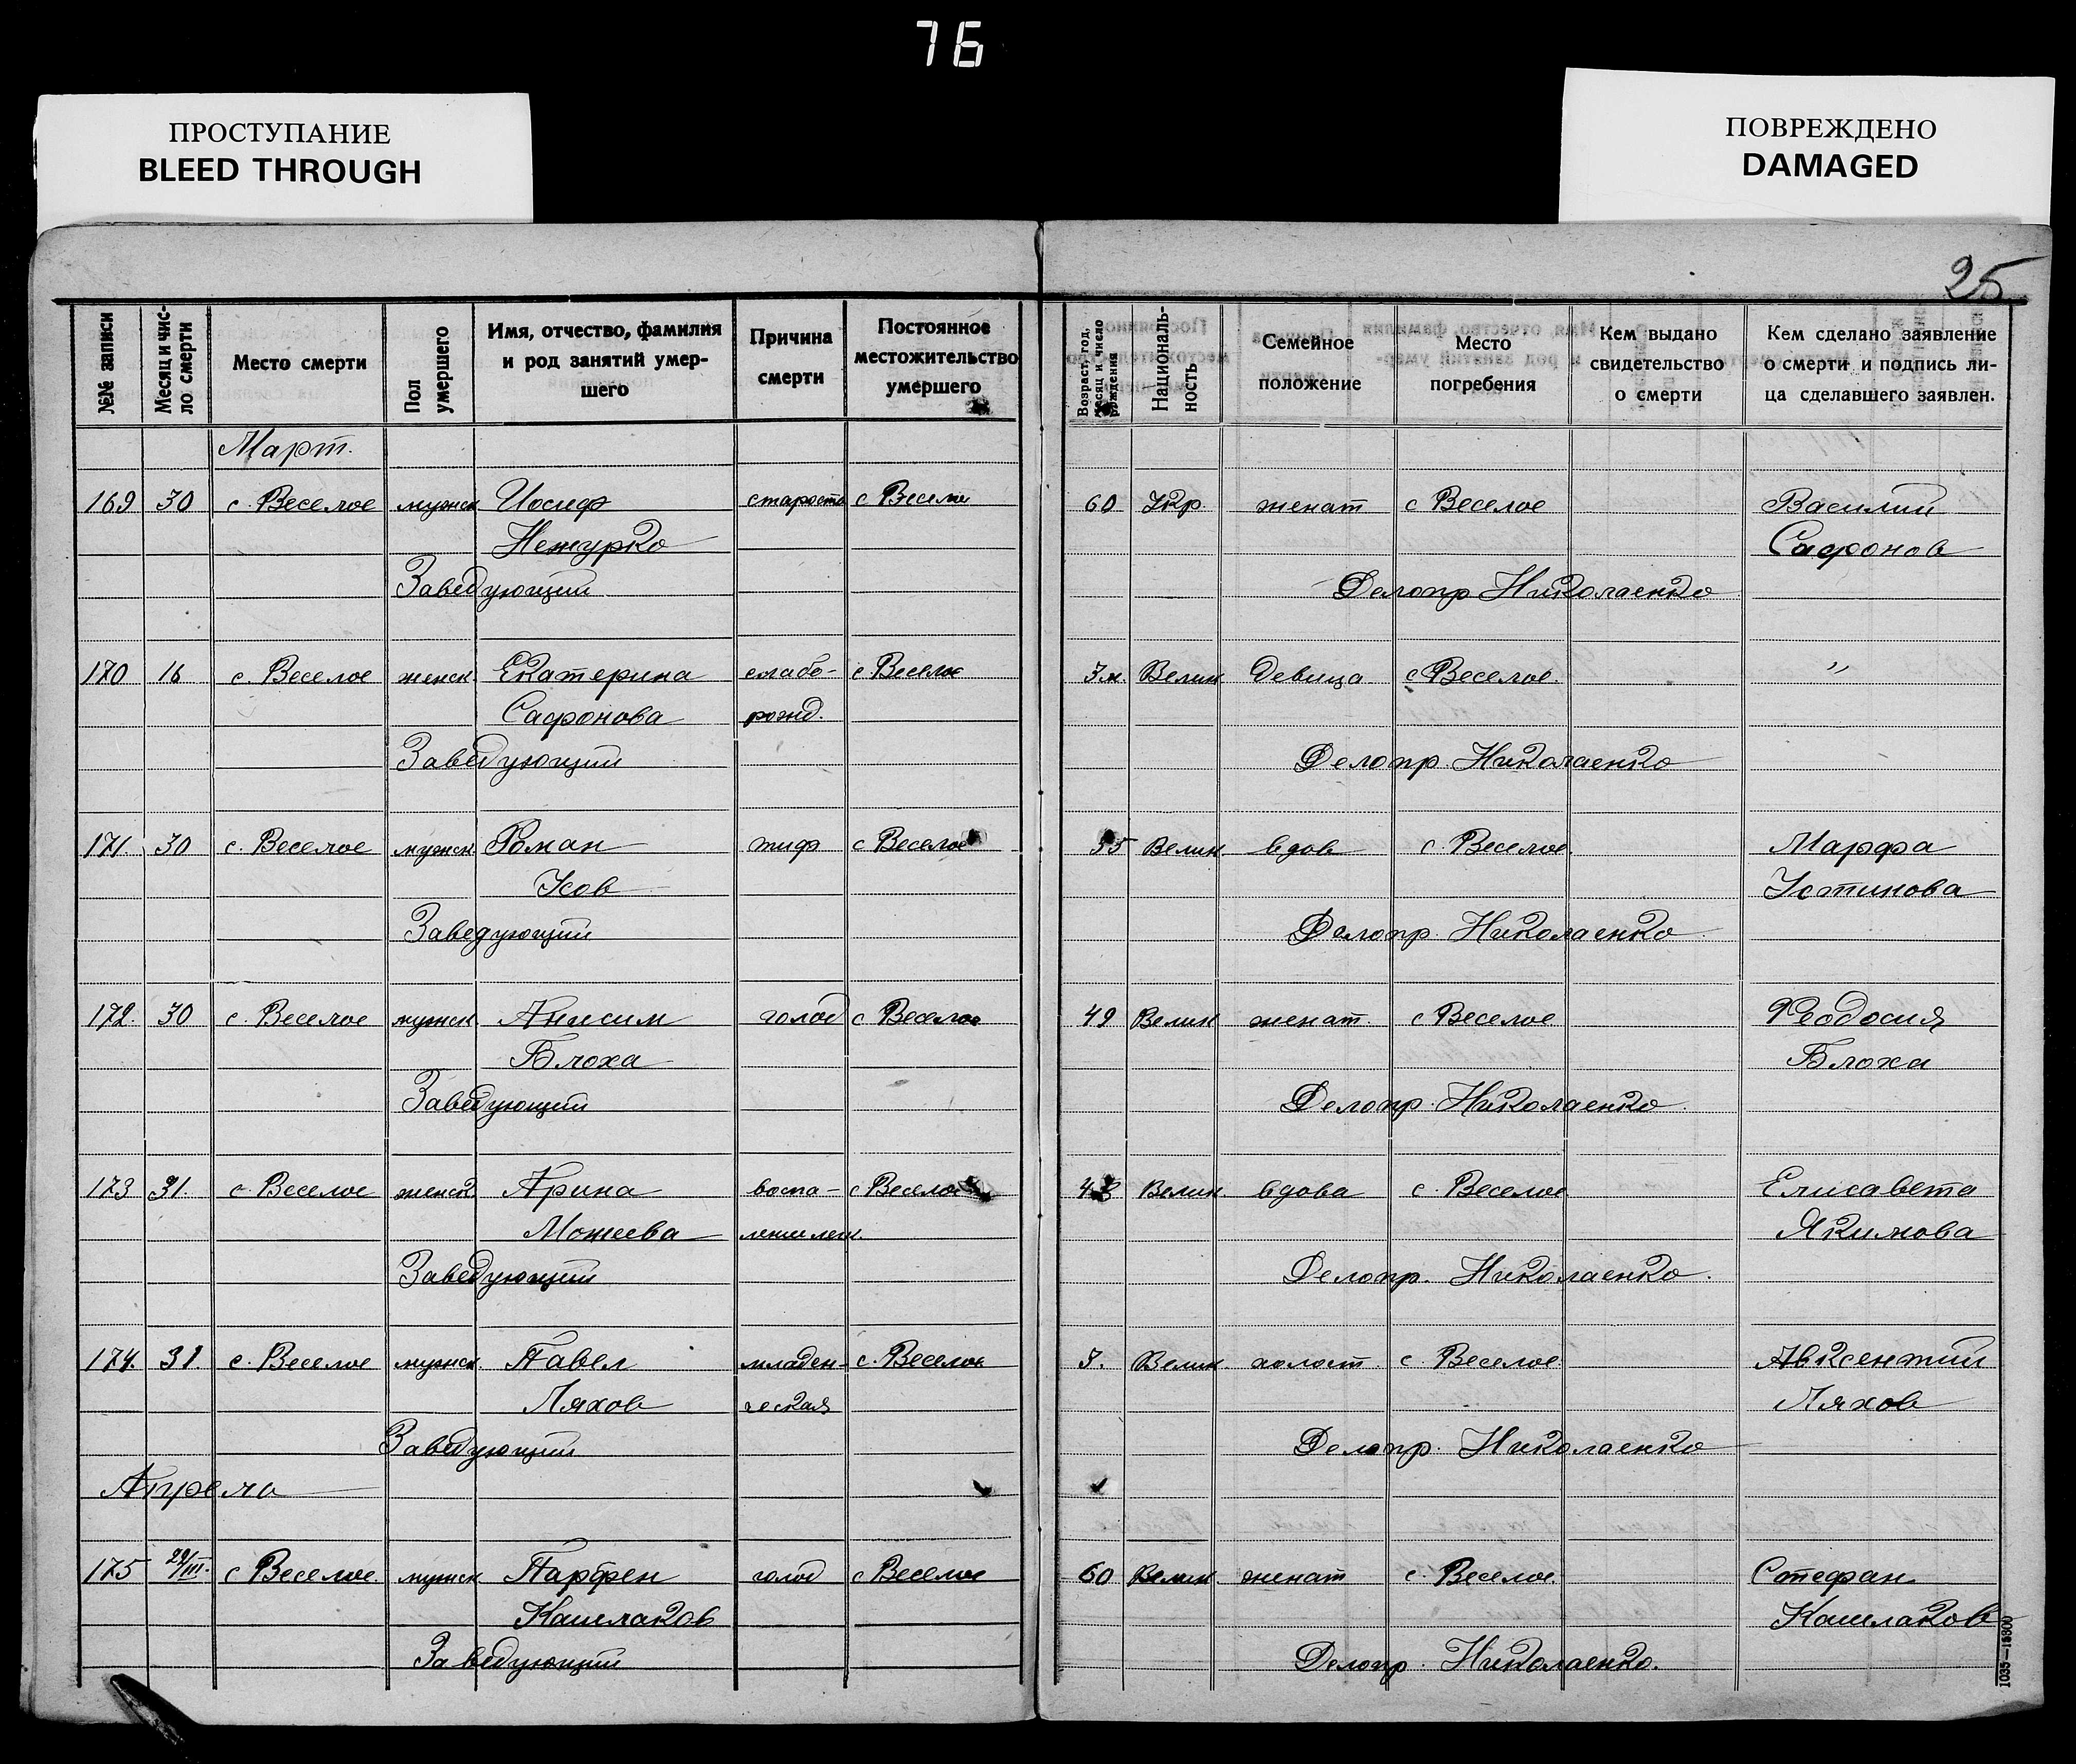 76
ПРОСТУПАНИЕ
BLEED THROUGH
ПОВРЕЖДЕНО
DAMAGED
25
№№ записи
Месяц и чис-
ло смерти
Место смерти
Пол
умершего
Имя, отчество, фамилия
и род занятий умер-
шего
Причина
смерти
Постоянное
местожительство
умершего
Возраст, год,
месяц и число
рождения
Националь-
ность
Семейное
положение
Место
погребения
Кем выдано
свидетельство
о смерти
Кем сделано заявление
о смерти и подпись ли-
ца сделавшего заявлен.
Март.
169 30 с. Веселое мужск Иосиф старость с Веселое 60 Укр. женат с Веселое Василий
Нежурко Сафонов
Заведующий Делопр Николаенко
170 16 с. Веселое женск. Екатерина слабо- с Веселое 3 м. Велик Девица с Веселое. "
Сафонова рожд.
Заведующий Делопр. Николаенко
171. 30 с. Веселое мужск Роман тиф с Веселое 35 Велик. вдов с. Веселое. Марфа
Усов Устинова
Заведующий Делопр. Николаенко
172. 30 с. Веселое мужск Анисим голод с Веселое 49 Велик женат. с Веселое Феодосия
Блоха Блоха
Заведующий Делопр. Николаенко.
173 31. с. Веселое женск Арина воспа- с Веселое Велик вдова с. Веселое. Елисавета
Мокеева ление лег. Якимова
Заведующий Делопр. Николаенко.
174. 31. с. Веселое мужск. Павел младен- с. Веселое 3. Велик. холост. с. Веселое Авксентий
Ляхов ческая Ляхов
Заведующий Делопр. Николаенко
Апрель
175 29/III. с Веселое. мужск Парфен голод с Веселое 60 Велик женат с. Веселое. Стефан
Кашлаков Кашлаков
Заведующий Делопр. Николаенко.
1035—15800